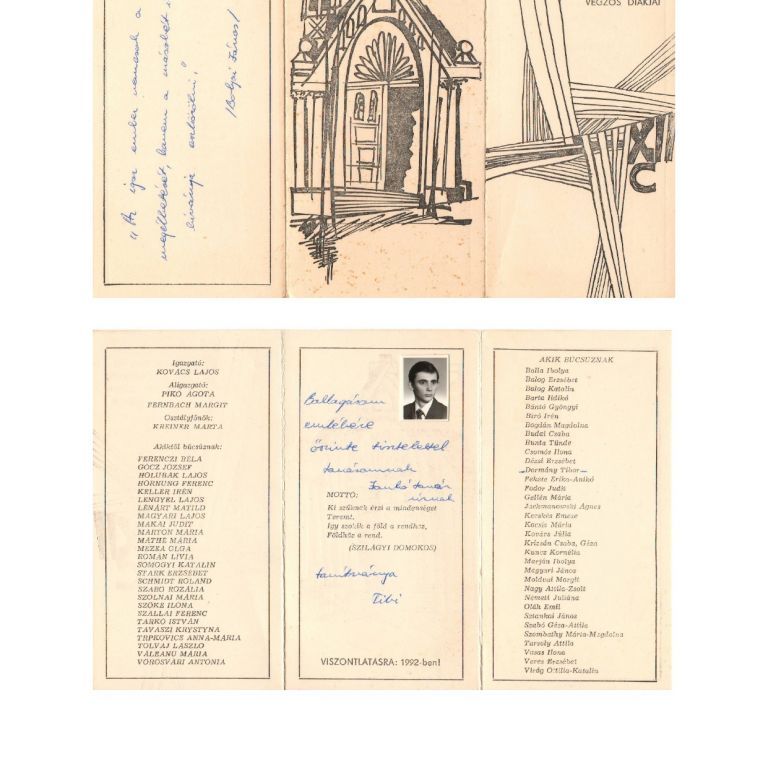 VÉGZŐS DIÁKJAI
"Az igaz ember nemcsak a
megélhetését, hanem a másokét is
kívánja
/Bolyai János/
XII
C
Igazgató:
KOVÁCS LAJOS
Aligazgató:
PIKÓ ÁGOTA
FERNBACH MARGIT
Osztályfőnök:
KREINER MÁRTA
Akiktől búcsúznak:
FERENCZI BÉLA
GÖCZ JÓZSEF
HOLUBÁK LAJOS
HORNUNG FERENC
KELLER IRÉN
LENGYEL LAJOS
LÉNÁRT MATILD
MAGYARI LAJOS
MAKAI JUDIT
MÁRTON MÁRIA
MÁTHÉ MÁRIA
MEZEA OLGA
ROMÁN LÍVIA
SOMOGYI KATALIN
STARK ERZSÉBET
SCHMIDT ROLAND
SZABÓ ROZÁLIA
SZOLNAI MÁRIA
SZŐKE ILONA
SZÁLLAI FERENC
TARKÓ ISTVÁN
TAVASZI KRYSTYNA
TRPKOVICS ANNA-MÁRIA
TOLVAJ LÁSZLÓ
VĂLEANU MÁRIA
VÖRÖSVÁRI ANTÓNIA
Ballagásom
emlékére
őszinte tisztelettel
tanáromnak
Jankó tanár
úrnak
MOTTÓ:
Ki szűknek érzi a mindenséget
Teremt.
Így szökik a föld a rendhöz,
Földhöz a rend.
(SZILÁGYI DOMOKOS)
tanítványa
Tibi
VISZONTLÁTÁSRA: 1992-ben!
AKIK BÚCSÚZNAK
Balla Ibolya
Balog Erzsébet
Balog Katalin
Barta Ildikó
Bántó Gyöngyi
Bíró Irén
Bogdán Magdolna
Budai Csaba
Bunta Tünde
Csomós Ilona
Dézsi Erzsébet
Dormány Tibor
Fekete Erika-Anikó
Fodor Judit
Gellén Mária
Jachmanowski Ágnes
Kecskés Emese
Kocsis Mária
Kovács Júlia
Krizsán Csaba, Géza
Kuncz Kornélia
Marján Ibolya
Magyari János
Moldvai Margit
Nagy Attila-Zsolt
Németi Juliána
Oláh Emil
Sztankai János
Szabó Géza-Attila
Szombathy Mária-Magdolna
Tarsoly Attila
Vasas Ilona
Veres Erzsébet
Virág Ottilia-Katalin